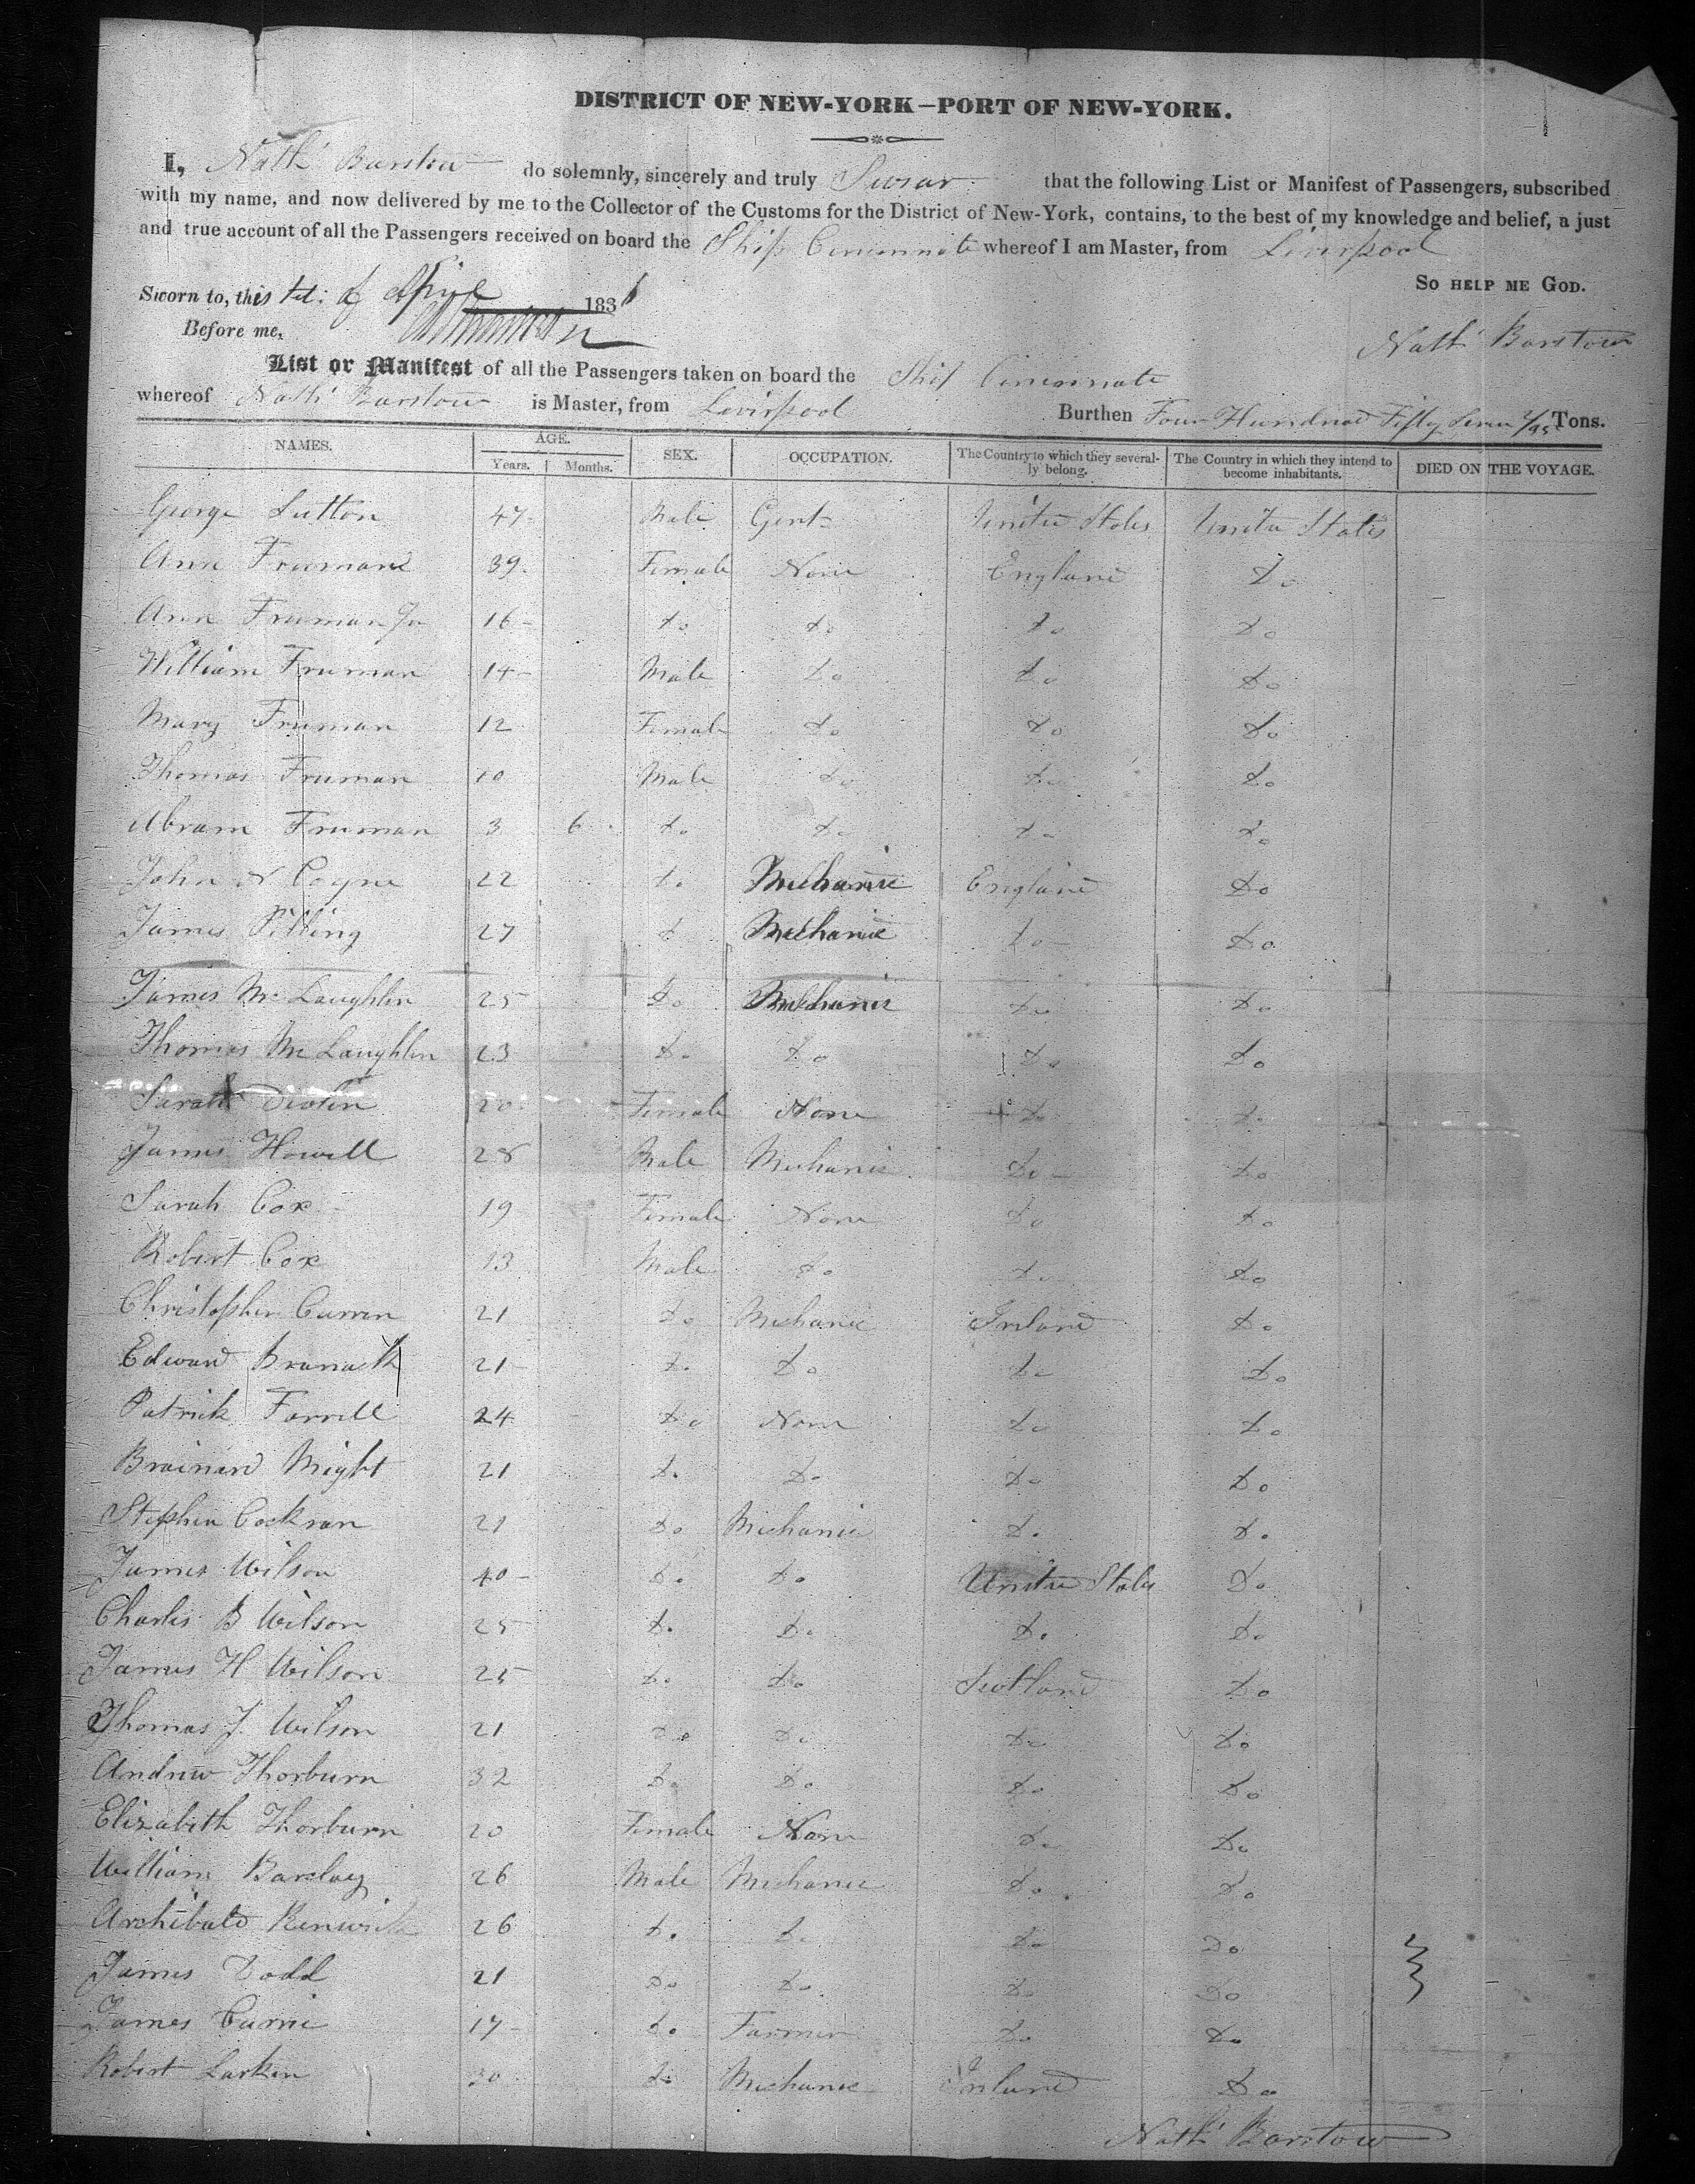 DISTRICT OF NEW-YORK—PORT OF NEW-YORK.
I, Nathl Barstow do solemnly, sincerely and truly Swear that the following List or Manifest of Passengers, subscribed
with my name, and now delivered by me to the Collector of the Customs for the District of New-York, contains, to the best of my knowledge and belief, a just
and true account of all the Passengers received on board the Ship Cincinnati whereof I am Master, from Liverpool
So HELP ME GOD.
Sworn to, this 1st: of April 1836
Before me,
Nathl Barstow
List or Manifest of all the Passengers taken on board the Ship Cincinnati
whereof Nathl Barstow is Master, from Liverpool Burthen Four Hundred Fifty Seven /95 Tons.
NAMES. AGE. SEX. OCCUPATION. The Country to which they severally belong. The Country in which they intend to become inhabitants. DIED ON THE VOYAGE.
Years. Months.
George Sutton 47 Male Gent United States United States
Ann Freeman 39 Female None England Do
Ann Freeman Jr 16 Do Do Do Do
William Freeman 14 Male Do Do Do
Mary Freeman 12 Female Do Do Do
Thomas Freeman 10 Male Do Do Do
Abram Freeman 3 6 Do Do Do Do
John N Coyne 22 Do Mechanic England Do
James Pilling 27 Do Mechanic Do Do
James McLaughlin 25 Do Mechanic Do Do
Thomas McLaughlin 23 Do Do Do Do
Sarah 20 Female None Do Do
James Howell 28 Male Mechanic Do Do
Sarah Cox 19 Female None Do Do
Robert Cox 13 Male Do Do Do
Christopher Curren 21 Do Mechanic Ireland Do
Edward 21 Do Do Do Do
Patrick Farrell 24 Do None Do Do
Brainard Might 21 Do Do Do Do
Stephen Cockran 21 Do Mechanic Do Do
James Wilson 40 Do Do United States Do
Charles B Wilson 25 Do Do Do Do
James H Wilson 25 Do Do Scotland Do
Thomas J. Wilson 21 Do Do Do Do
Andrew Thorburn 32 Do Do Do Do
Elizabeth Thorburn 20 Female None Do Do
William Barclay 26 Male Mechanic Do Do
Archibald Renwick 26 Do Do Do Do
James Dodd 21 Do Do Do Do
James Currie 17 Do Farmer Do Do
Robert Larkin 30 Do Mechanic Ireland Do
Nathl Barstow